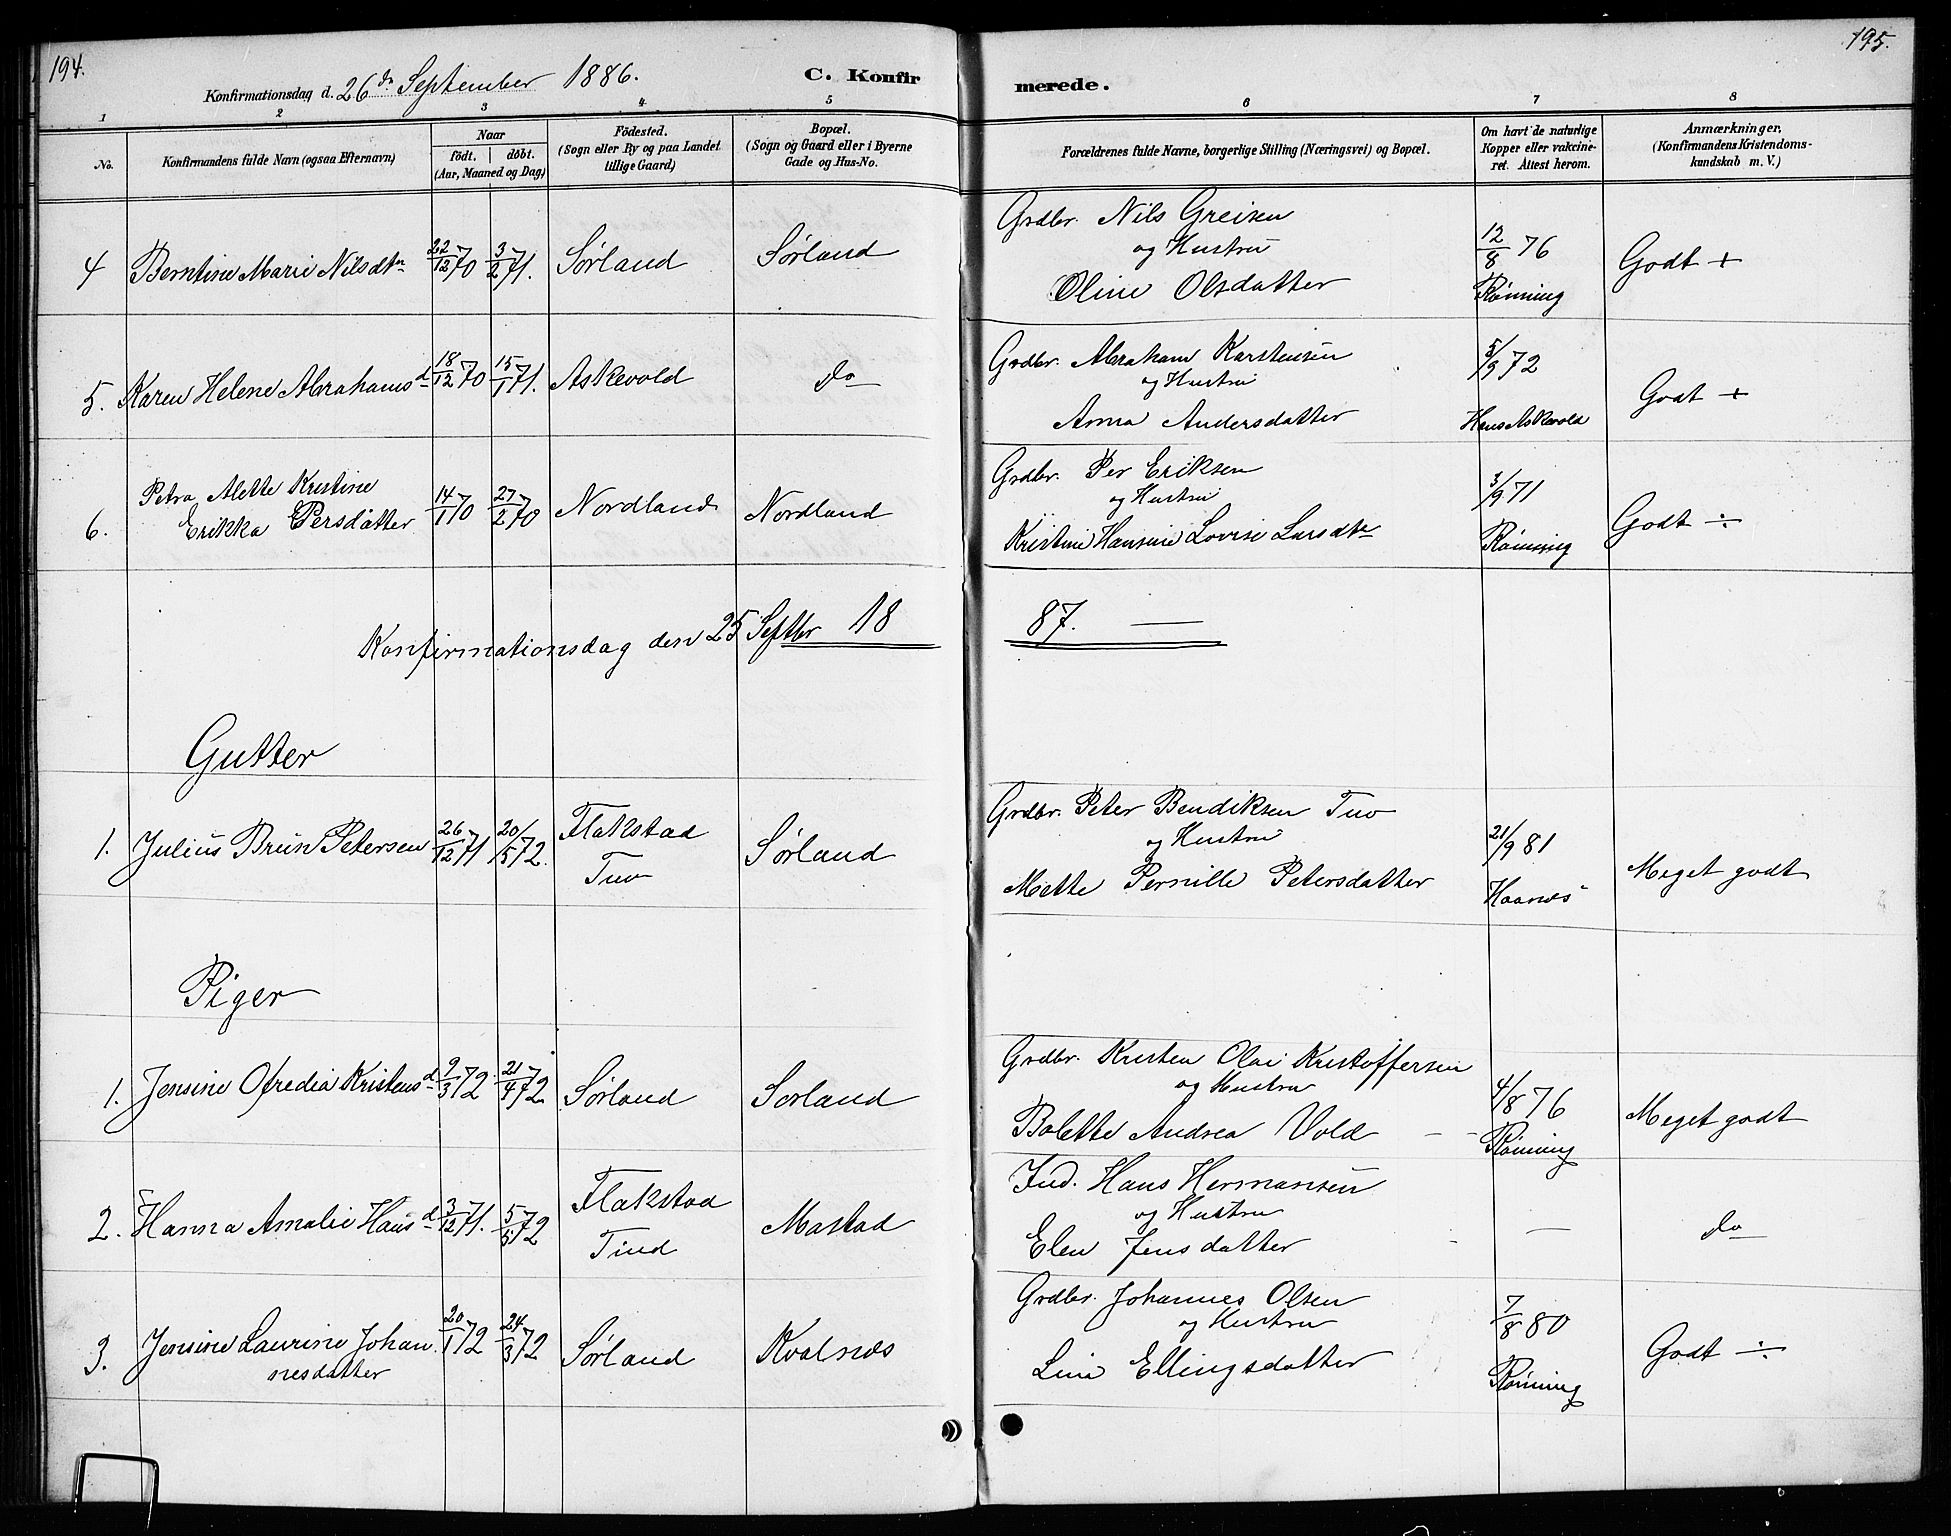 194.
195.
Konfirmationsdag d. 26de September 1886.
C. Konfirmerede.
1 2 3 4 5 6 7 8
No.
Konfirmandens fulde Navn (ogsaa Efternavn)
Naar
født. | døbt.
(Aar, Maaned og Dag)
Födested.
(Sogn eller By og paa Landet
tillige Gaard)
Bopæl.
(Sogn og Gaard eller i Byerne
Gade og Hus-No.
Forældrenes fulde Navne, borgerlige Stilling (Næringsvei) og Bopæl.
Om havt de naturlige
Kopper eller vakcine-
ret. Attest herom.
Anmærkninger,
(Konfirmandens Kristendoms-
kundskab m. V.)
4 Berntine Marie Nilsdtr 22/12 70 3/2 71. Sørland Sørland
Grdbr. Nils Greisen
og Hustru
Oline Olsdatter
12/8 76
Rønning
Godt +
5. Karen Helene Abrahamsd 18/12 70 15/1 71. Askevold do
Grdbr. Abraham Karstensen
og Hustru
Anna Andersdatter
5/9 72
Hans Askevold
Godt +
6. Petra Alette Kristine
Erikka Persdatter 14/1 70 27/2 70 Nordland Nordland
Grdbr. Per Eriksen
og Hustru
Kristine Hansine Lovise Larsdtr
3/9 71
Rønning
Godt ÷
Konfirmationsdag den 25 Septbr 1887. —
Gutter
1. Julius Brun Petersen 26/12 71 20/5 72. Flakstad
Tuv
Sørland
Grdbr. Peter Bendiksen Tuv
og Hustru
Mette Pernille Petersdatter
21/9 81
Haanes
Meget godt
Piger
1. Jensine Ofredia Kristensd 9/3 72. 21/4 72 Sørland Sørland
Grdbr. Kristen Olai Kristoffersen
og Hustru
Bolette Andrea Vold
4/8 76
Rønning
Meget godt
2. Hanna Amalie Hansd 3/12 71. 5/5 72 Flakstad
Tind
Mastad
Ind. Hans Hermansen
og Hustru
Elen Jensdatter
—
do
3. Jensine Laurine Johan
nesdatter 20/1 72 24/3 72 Sørland Kvalnes
Grdbr. Johannes Olsen
og Hustru
Lina Ellingsdatter
7/8 80
Rønning
Godt ÷